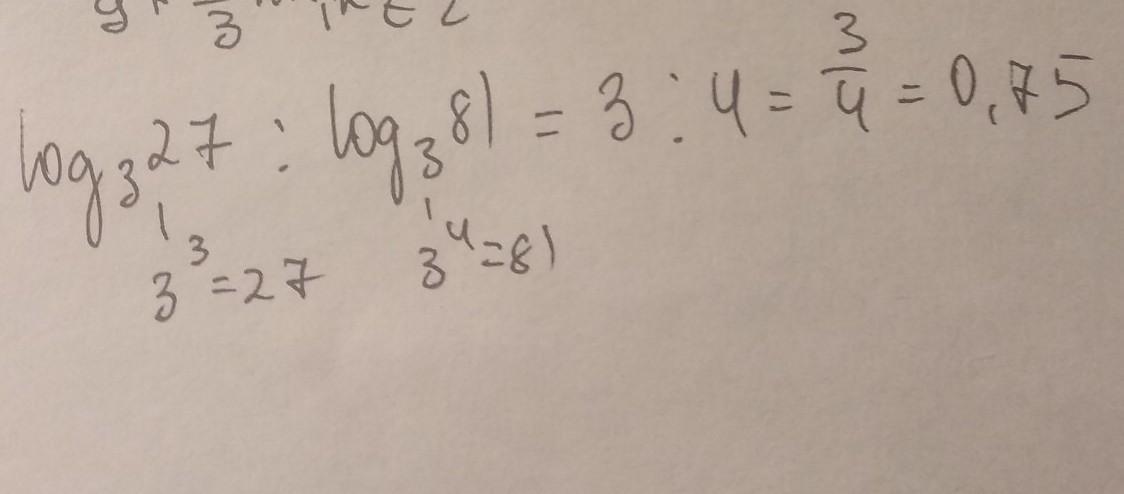 log₃27 : log₃81 = 3 : 4 = 3/4 = 0,75
3³=27 3⁴=81